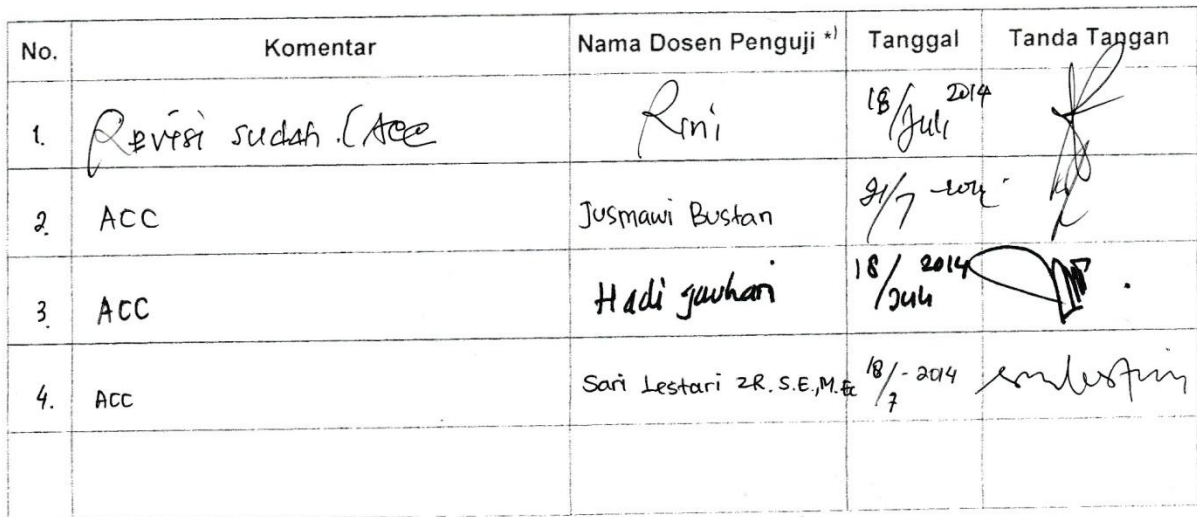 No. Komentar Nama Dosen Penguji *) Tanggal Tanda Tangan
1. Revisi sudah. (Acc Rini 18/Juli 2014
2. ACC Jusmawi Bustan 21/7 2014
3. ACC Hadi Jauhari 18/Juli 2014
4. ACC Sari Lestari ZR. S.E.,M.Ec 18/7-2014